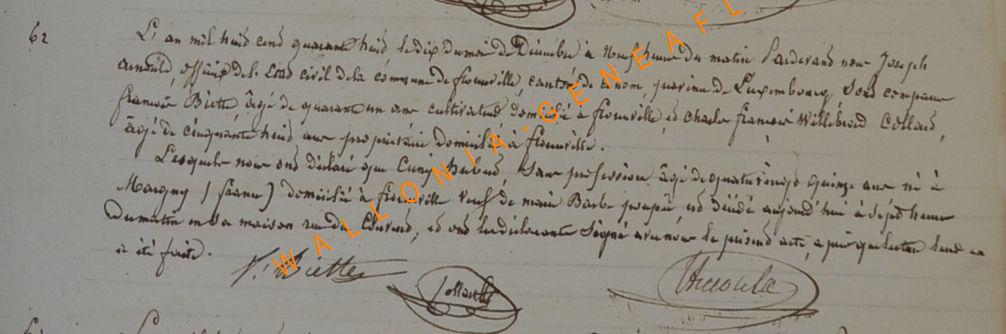 62
L'an mil huit cent quarante huit le dix du mois de Décembre à neuf heures du matin Pardevant nous Joseph
Arnould, officier de l'état civil de la commune de florenville, canton de ce nom, province de Luxembourg, sont comparus
françois Biette âgé de quarante un ans cultivateur domicilié à florenville, et charles françois Willebrord Collard,
âgé de cinquante huit ans propriétaire domicilié à florenville.
Lesquels nous ont déclaré que Cuny hubert sans profession âgé de quatrevingt quinze ans né à
Margny (france) domicilié à florenville veuf de marie Barbe est décédé aujourd'hui à sept heures
du matin en sa maison rue de et ont les déclarant signé avec nous le présent acte, après que lecture leur en
a été faite.
f. Biette Collard J Arnould
WALLONIA-GENEAFL